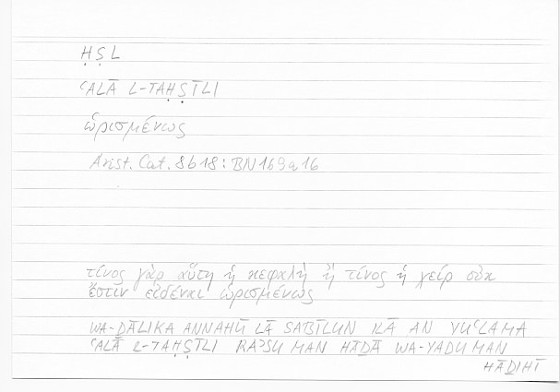 ḤṢL
ʿALĀ L-TAḤṢĪLI
ὡρισμένως
Arist. Cat. 8b18: BN 169a16
τίνος γὰρ αὕτη ἡ κεφαλὴ ἢ τίνος ἡ χείρ οὐκ
ἔστιν εἰδέναι ὡρισμένως
WA-ḎĀLIKA ANNAHŪ LĀ SABĪLUN ILĀ AN YUʿLAMA
ʿALĀ L-TAḤṢĪLI RAʾSU MAN HĀḎĀ WA-YADU MAN
HĀḎIHĪ